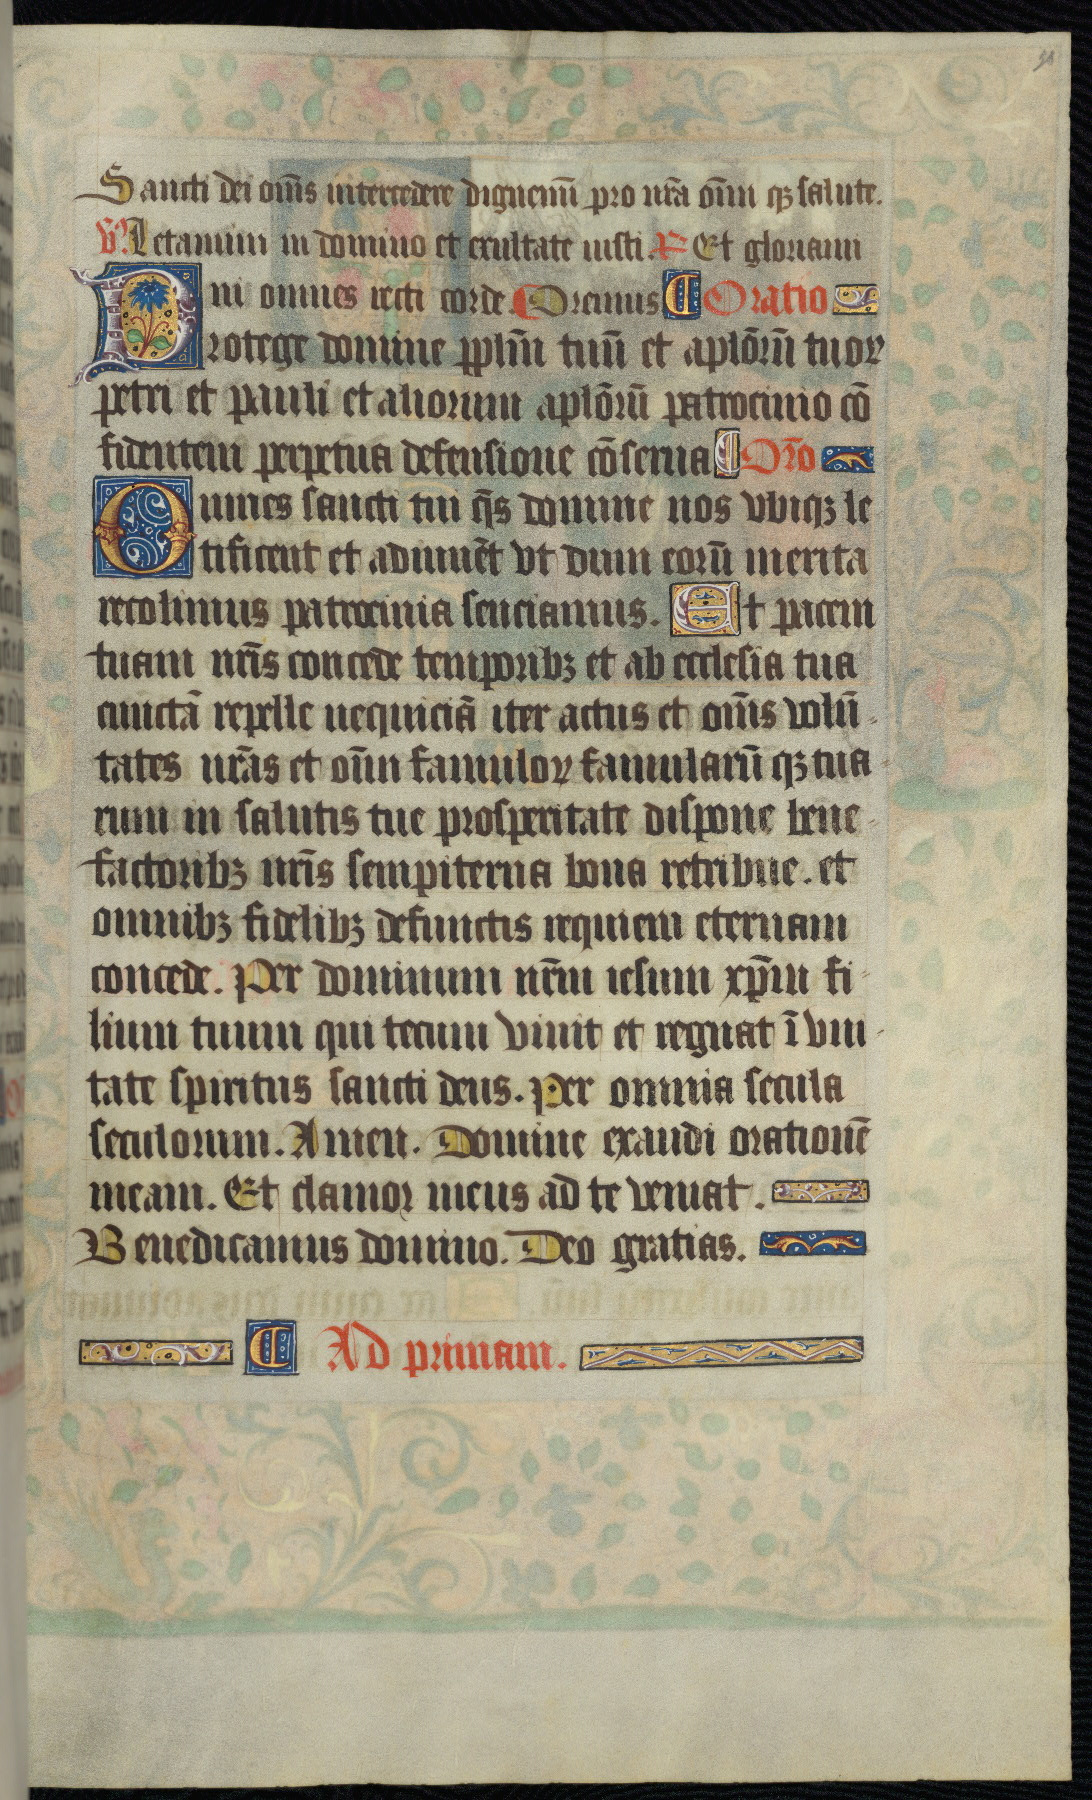 Sancti dei om̄s intercedere dignemī pro nr̄a om̄i qꝫ salute.
V̄. Letamini in domino et exultate iusti. R̄ Et gloriami
ni omnes recti corde. Oremus Oratio
Protege domine ꝑplm̄ tuū et aplōrū tuoꝝ
petri et pauli et aliorum aplōrū patrocinio cō
fidentem perpetua defensione cōserua Or̄o
Omnes sancti tui qs̄ domine nos vbiqꝫ le
tificent et adiuuēt vt dum eorū merita
recolimus patrocinia senciamus. Et pacem
tuam nr̄is concede temporibꝫ et ab ecclesia tua
cunctā repelle nequiciā iter actus et om̄is volū
tates nr̄as et om̄i famuloꝝ famularū qꝫ tua
rum in salutis tue prosperitate dispone bene
factoribꝫ nr̄is sempiterna bona retribue. et
omnibꝫ fidelibꝫ defunctis requiem eternam
concede. Per dominum nr̄m iesum xp̄m fi
lium tuum qui tecum viuit et regnat ī vni
tate spiritus sancti deus. Per omnia secula
seculorum. Amen. Domine exaudi orationē
meam. Et clamor meus ad te veniat.
Benedicamus domino. Deo gratias.
Ad primam.